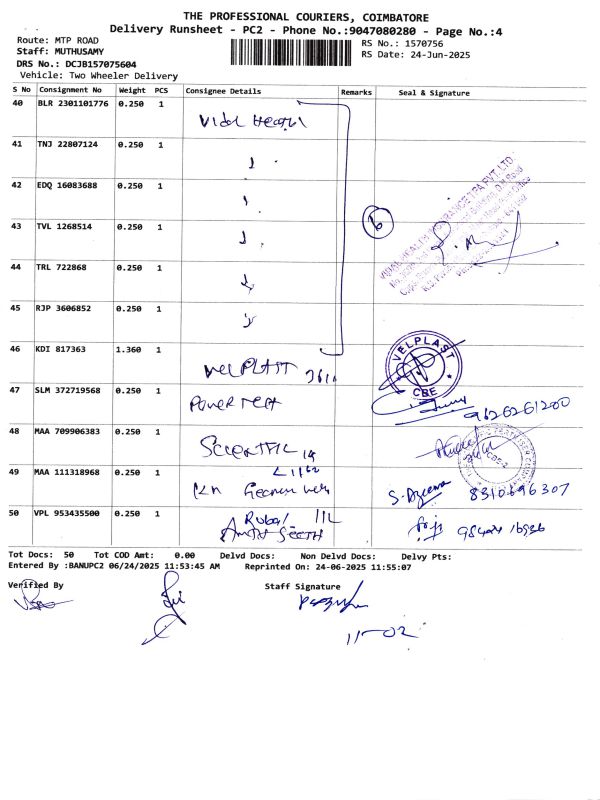 THE PROFESSIONAL COURIERS, COIMBATORE
Delivery Runsheet - PC2 - Phone No.:9047080280 - Page No.:4
Route: MTP ROAD
RS No.: 1570756
Staff: MUTHUSAMY
RS Date: 24-Jun-2025
DRS No.: DCJB157075604
Vehicle: Two Wheeler Delivery
S No Consignment No Weight PCS Consignee Details Remarks Seal & Signature
40 BLR 2301101776 0.250 1 Vidal Health
41 TNJ 22807124 0.250 1
42 EDQ 16083688 0.250 1
43 TVL 1268514 0.250 1
6
44 TRL 722868 0.250 1
45 RJP 3606852 0.250 1
46 KDI 817363 1.360 1 VELPLAST
VELPLAST
CBE
47 SLM 372719568 0.250 1 POWER TECH
9626261200
48 MAA 709906383 0.250 1 SCIENTIFIC
CBE-2
49 MAA 111318968 0.250 1
8310696307
50 VPL 953435500 0.250 1
Tot Docs: 50 Tot COD Amt: 0.00 Delvd Docs: Non Delvd Docs: Delvy Pts:
Entered By :BANUPC2 06/24/2025 11:53:45 AM Reprinted On: 24-06-2025 11:55:07
Verified By Staff Signature
11-02